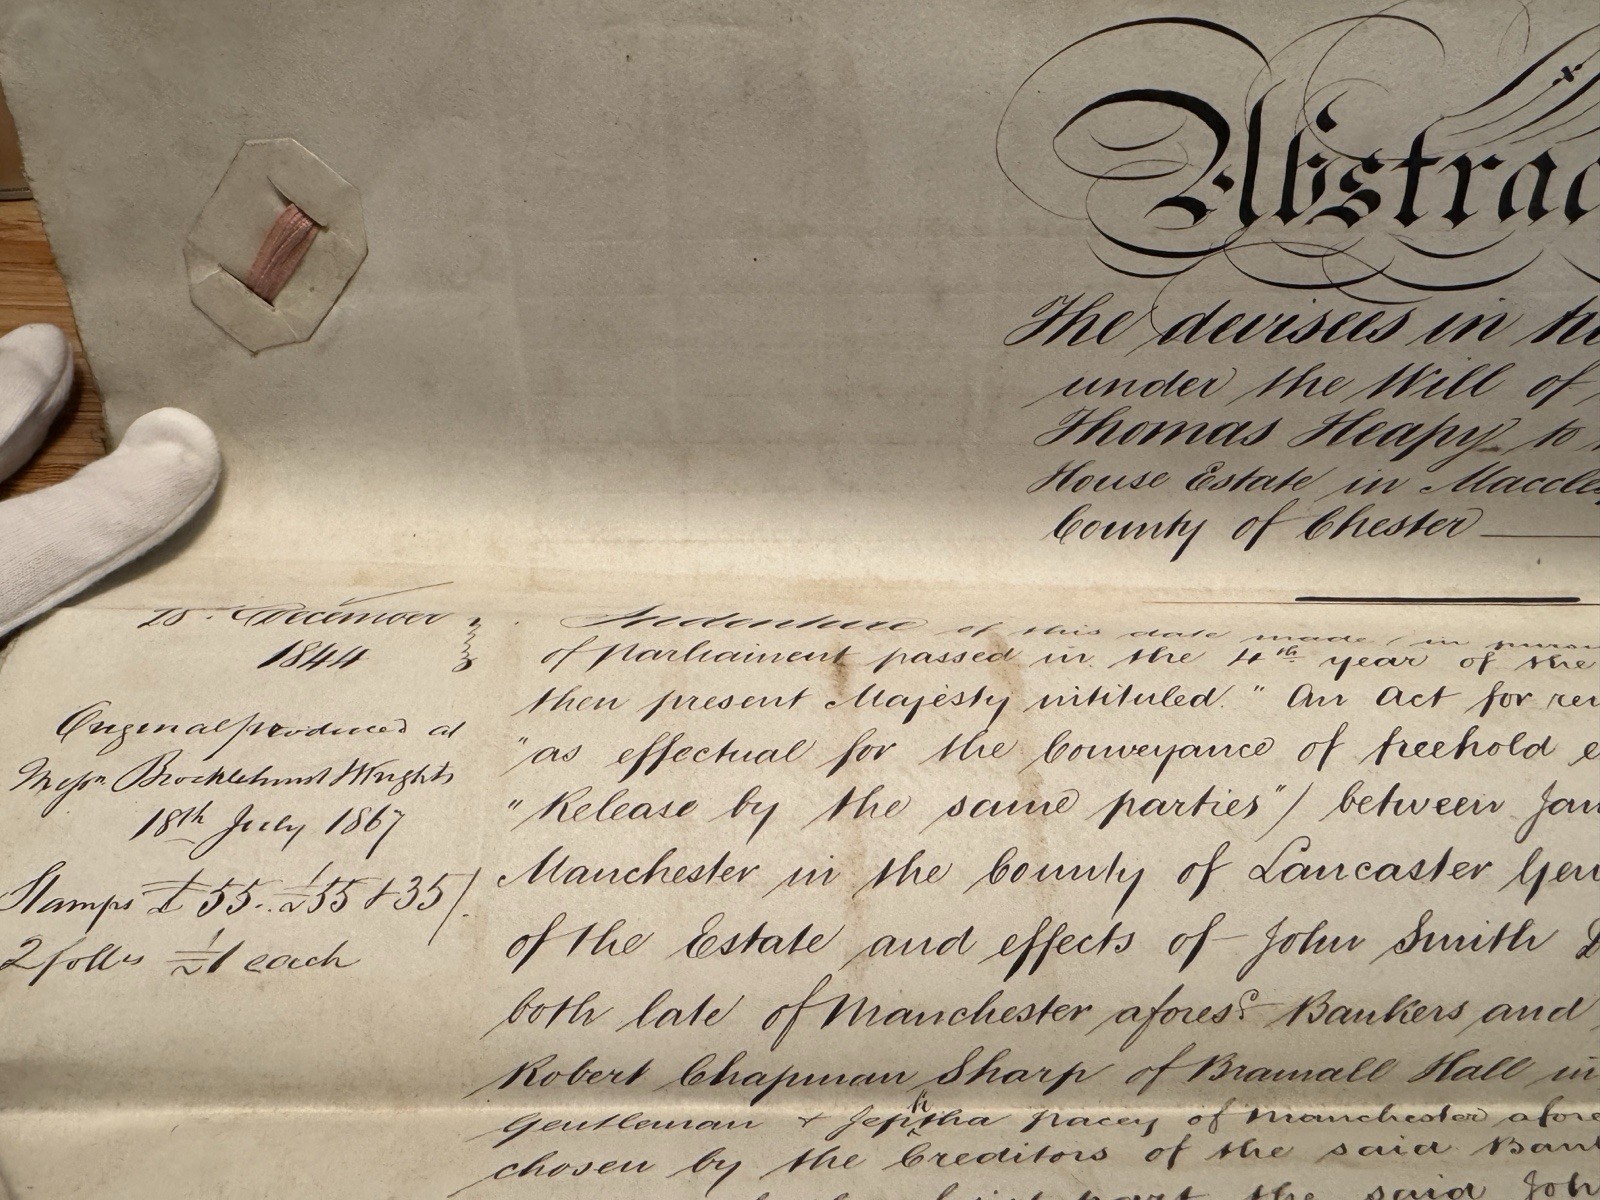 Abstrac
The devisees in
under the Will of
Thomas Heapy to
House Estate in Maccles
County of Chester
December
1844
Original produced at
Messrs Brocklehurst & Wrights
18th July 1867
Stamps £55. £35 & 35/.
2 foll's £1 each
Indenture of this date made (in pursu
of Parliament passed in the 4th year of the
then present Majesty intituled. "An Act for ren
"as effectual for the Conveyance of freehold e
"Release by the same parties") between Jam
Manchester in the County of Lancaster Gen
of the Estate and effects of John Smith
both late of Manchester afores.d Bankers and
Robert Chapman Sharp of Bramall Hall in
Gentleman & Jephtha Pacey of Manchester afore
chosen by the Creditors of the said Bank
part the said Joh